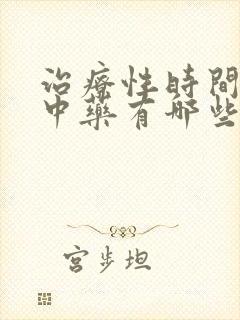 治療性時間
中藥有哪些
宮步坦